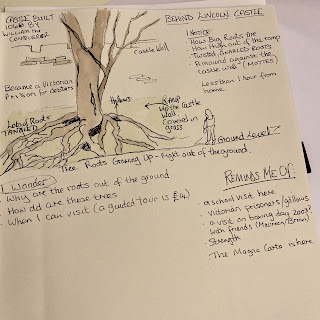 CASTLE BUILT
1068 BY
WILLIAM THE
CONQUEROR
BEHIND LINCOLN CASTLE
I NOTICE
How BIG Roots are
How High out of the ramp
TWISTED, GNARLED ROOTS
A mound against the
castle wall (MOTTE)
Less than 1 hour from
home
Castle Wall
Became a Victorian
Prison for debtors
Hollows
RAMP
UP TO the CASTLE
WALL
Covered in
grass
Web of Roots
TANGLED
Ground Level
Tree Roots Growing Up - Right out of the ground
I Wonder
- Why are the roots out of the ground
- How old are these trees
- When I can visit (a guided tour is £14)
REMINDS ME OF:
- a school visit here
- Victorian prisoners/gallows
- a visit on boxing day 2003?
with friends (Maureen/Brian)
- Strength
The Magna Carta is here